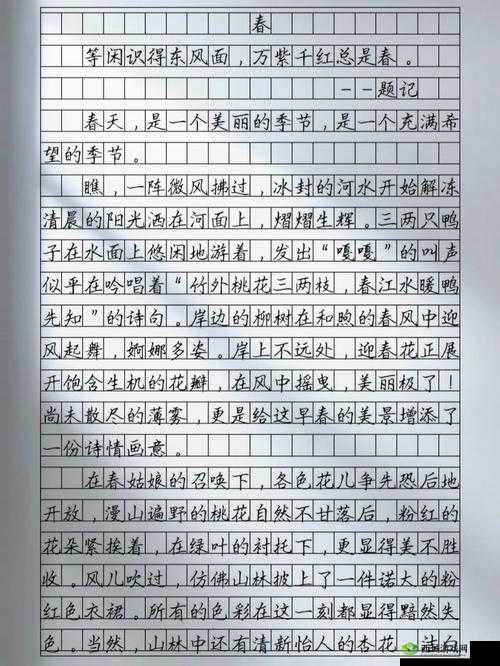 春
等闲识得东风面，万紫千红总是春。
——题记
春天，是一个美丽的季节，是一个充满希
望的季节。
瞧，一阵微风拂过，冰封的河水开始解冻
清晨的阳光洒在河面上，熠熠生辉。三两只鸭
子在水面上悠闲地游着，发出“嘎嘎”的叫声
似乎在吟唱着“竹外桃花三两枝，春江水暖鸭
先知”的诗句。岸边的柳树在和煦的春风中迎
风起舞，婀娜多姿。岸上不远处，迎春花正展
开饱含生机的花瓣，在风中摇曳，美丽极了！
尚未散尽的薄雾，更是给这早春的美景增添了
一份诗情画意。
在春姑娘的召唤下，各色花儿争先恐后地
开放，漫山遍野的桃花自然不甘落后，粉红的
花朵紧挨着，在绿叶的衬托下，更显得美不胜
收。风儿吹过，仿佛山林披上了一件诺大的粉
红色衣裙。所有的色彩在这一刻都显得黯然失
色。当然，山林中还有清新怡人的杏花，洁白